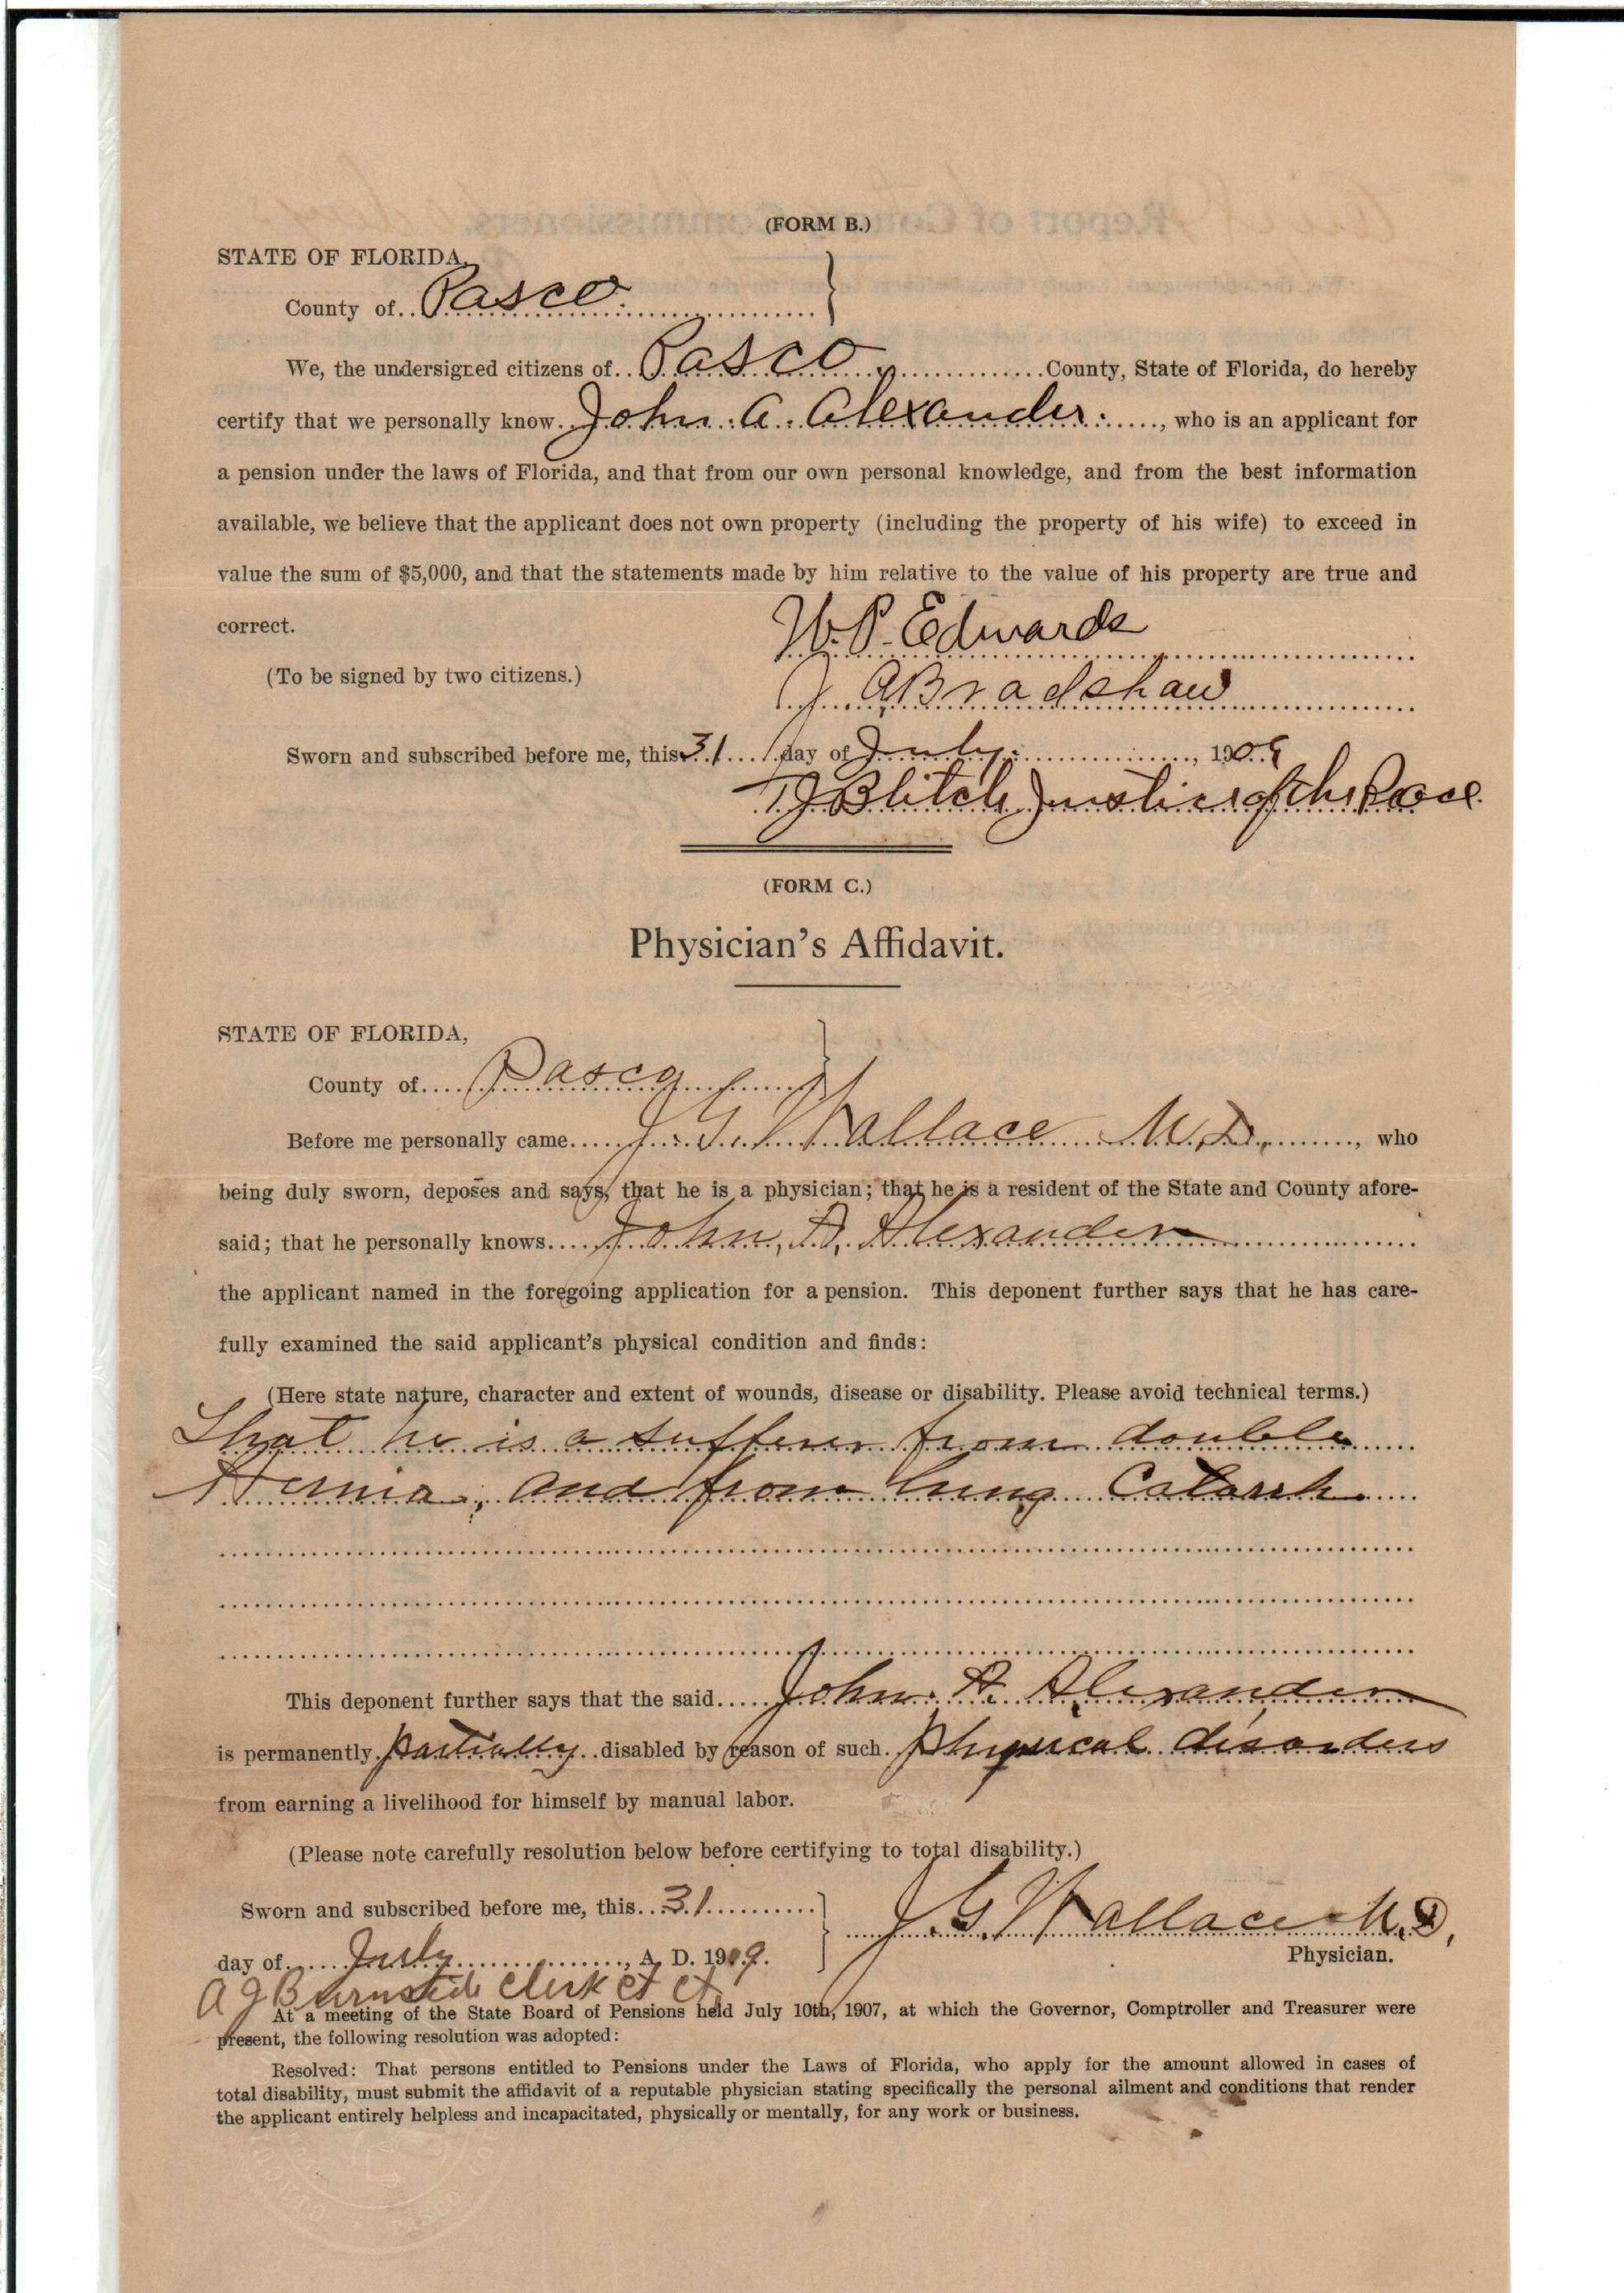 (FORM B.)
STATE OF FLORIDA,
County of Pasco.
We, the undersigned citizens of Pasco County, State of Florida, do hereby
certify that we personally know John A. Alexander, who is an applicant for
a pension under the laws of Florida, and that from our own personal knowledge, and from the best information
available, we believe that the applicant does not own property (including the property of his wife) to exceed in
value the sum of $5,000, and that the statements made by him relative to the value of his property are true and
correct.
W. P. Edwards
(To be signed by two citizens.)
J. A Bradshaw
Sworn and subscribed before me, this 31 day of July, 1909
T J Blitch Justice of the Peace
(FORM C.)
Physician's Affidavit.
STATE OF FLORIDA,
County of Pasco
Before me personally came J. G. Wallace M.D., who
being duly sworn, deposes and says, that he is a physician; that he is a resident of the State and County afore-
said; that he personally knows John, A. Alexander
the applicant named in the foregoing application for a pension. This deponent further says that he has care-
fully examined the said applicant's physical condition and finds:
(Here state nature, character and extent of wounds, disease or disability. Please avoid technical terms.)
That he is a sufferer from double
Hernia, and from lung Catarrh.
This deponent further says that the said John. A. Alexander
is permanently partially disabled by reason of such physical disorders
from earning a livelihood for himself by manual labor.
(Please note carefully resolution below before certifying to total disability.)
Sworn and subscribed before me, this 31
J. G. Wallace M.D,
day of July, A. D. 1909.
Physician.
A J Burnside Clerk Ct Ct
At a meeting of the State Board of Pensions held July 10th, 1907, at which the Governor, Comptroller and Treasurer were
present, the following resolution was adopted:
Resolved: That persons entitled to Pensions under the Laws of Florida, who apply for the amount allowed in cases of
total disability, must submit the affidavit of a reputable physician stating specifically the personal ailment and conditions that render
the applicant entirely helpless and incapacitated, physically or mentally, for any work or business.